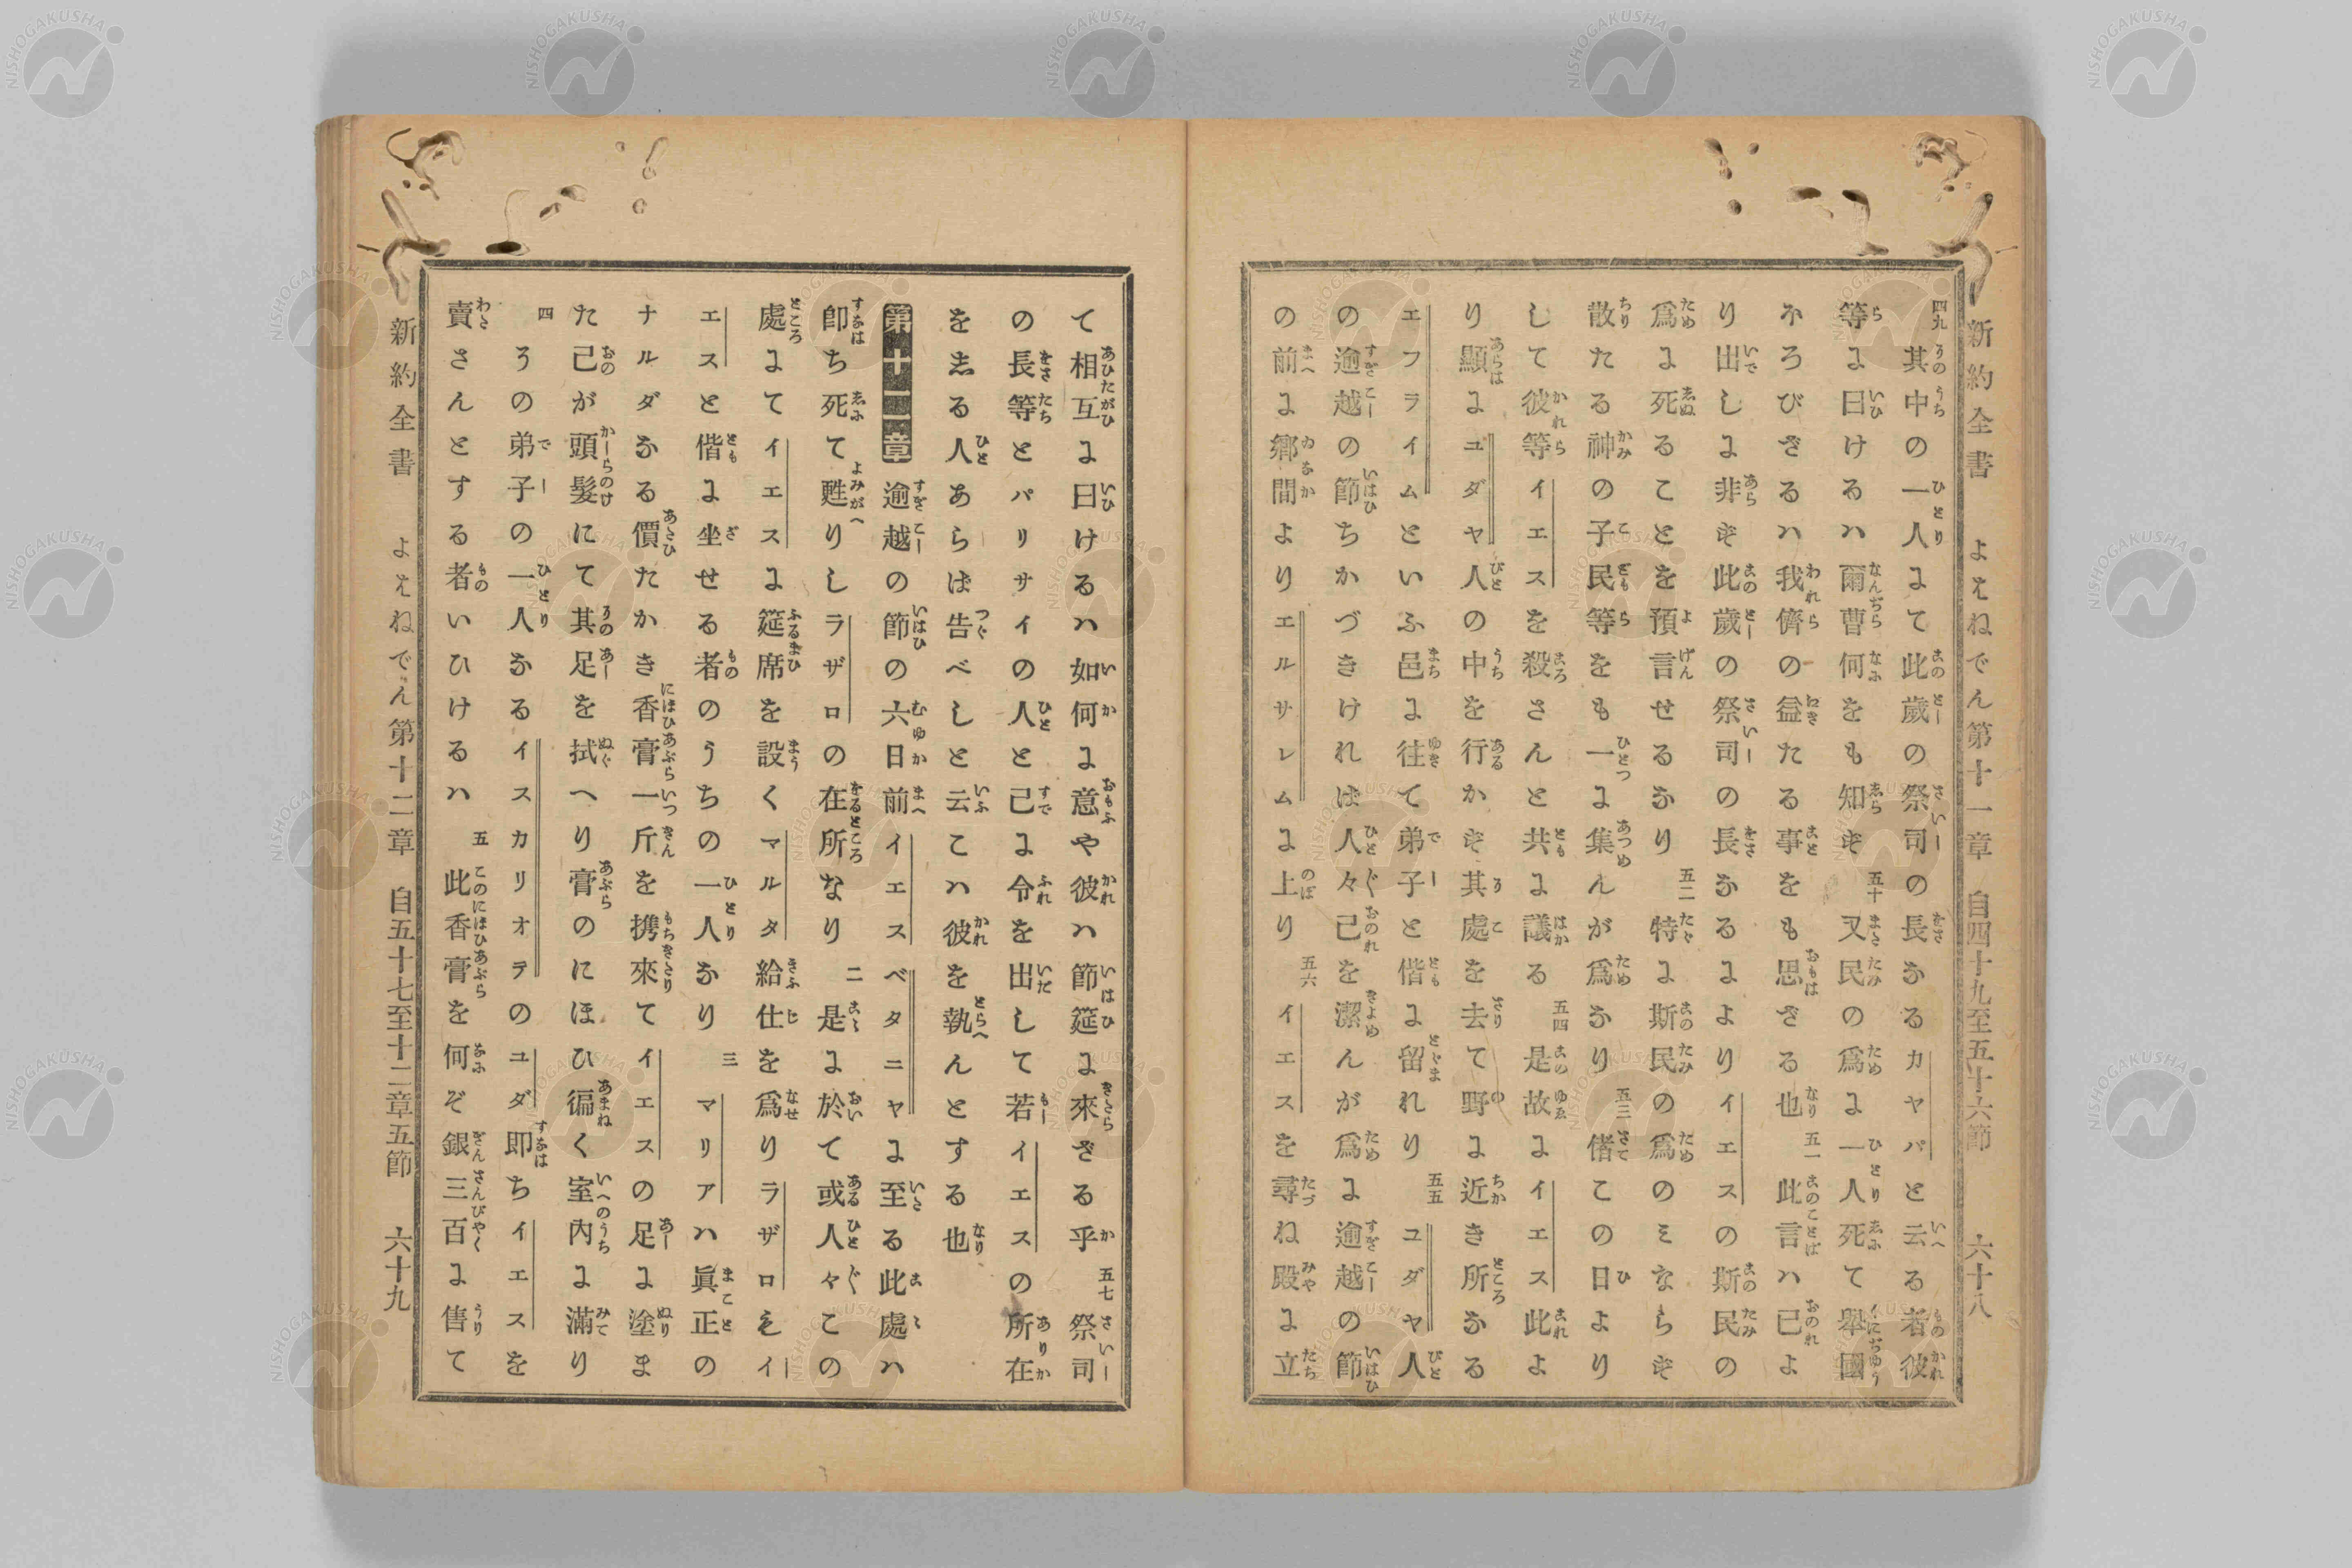 新約全書 よはねでん第十一章 自四十九至五十六節 六十八
四九 其中の一人にて此歳の祭司の長なるカヤパと云る者彼
等に曰けるハ爾曹何をも知ず 五十 又民の爲に一人死て擧國
ほろびざるハ我儕の益たる事をも思ざる也 五一 此言ハ己よ
り出しに非ず此歳の祭司の長なるによりイエスの斯民の
爲に死ることを預言せるなり 五二 特に斯民の爲のミならず
散たる神の子民等をも一に集んが爲なり 五三 偖この日より
して彼等イエスを殺さんと共に議る 五四 是故にイエス此よ
り顯にユダヤ人の中を行かず其處を去て野に近き所なる
エフライムといふ邑に往て弟子と偕に留れり 五五 ユダヤ人
の逾越の節ちかづきければ人々己を潔んが爲に逾越の節
の前に郷間よりエルサレムに上り 五六 イエスを尋ね殿に立
て相互に曰けるハ如何に意や彼ハ節筵に來ざる乎 五七 祭司
の長等とパリサイの人と已に令を出して若イエスの所在
を志る人あらば告べしと云こハ彼を執んとする也
第十二章 逾越の節の六日前イエスベタニヤに至る此處ハ
即ち死て甦りしラザロの在所なり 二 是に於て或人々この
處にてイエスに筵席を設くマルタ給仕を爲りラザロもイ
エスと偕に坐せる者のうちの一人なり 三 マリアハ眞正の
ナルダなる價たかき香膏一斤を携來てイエスの足に塗ま
た己が頭髮にて其足を拭へり膏のにほひ徧く室内に滿り
四 その弟子の一人なるイスカリオテのユダ即ちイエスを
賣さんとする者いひけるハ 五 此香膏を何ぞ銀三百に售て
新約全書 よはねでん第十二章 自五十七至十二章五節 六十九